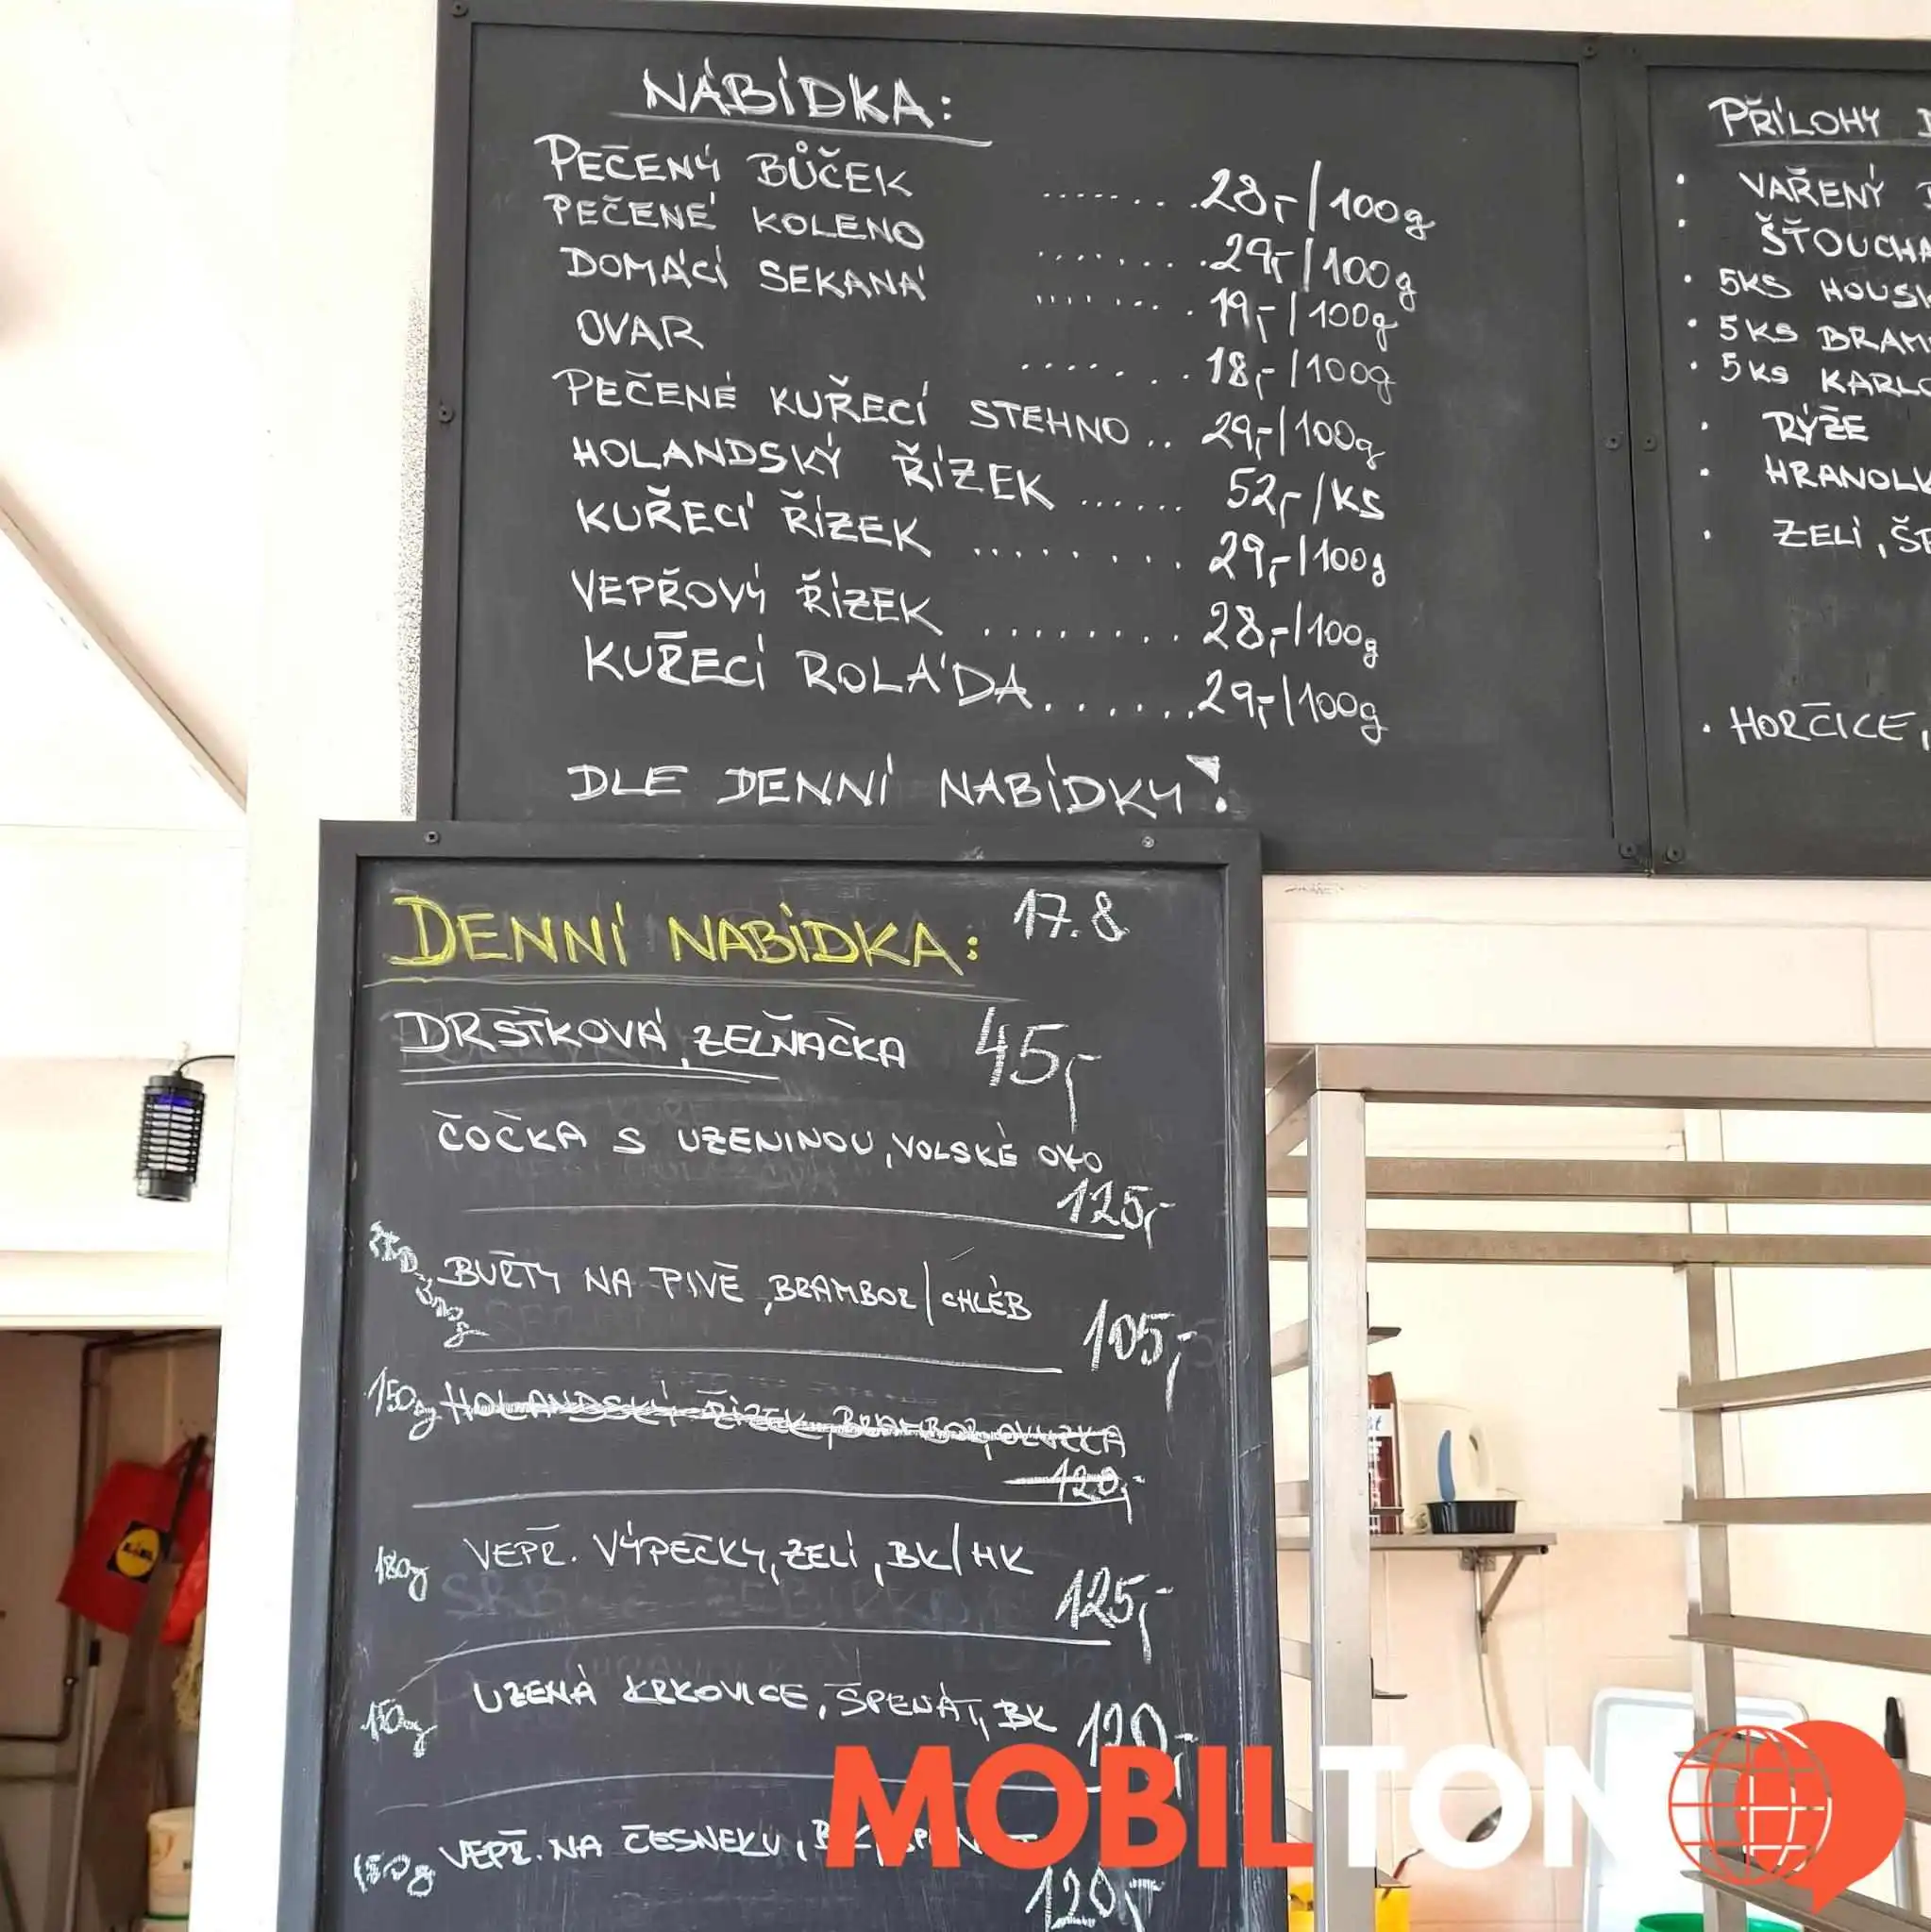 NABÍDKA:
PEČENÝ BŮČEK ........ 28,-/100g
PEČENÉ KOLENO ........ 29,-/100g
DOMÁCÍ SEKANÁ ....... 19,-/100g
OVAR ....... 18,-/100g
PEČENÉ KUŘECÍ STEHNO .. 29,-/100g
HOLANDSKÝ ŘÍZEK ...... 52,-/KS
KUŘECÍ ŘÍZEK ........ 29,-/100g
VEPŘOVÝ ŘÍZEK ......... 28,-/100g
KUŘECÍ ROLÁDA ...... 29,-/100g
DLE DENNÍ NABÍDKY!
PŘÍLOHY
• VAŘENÝ
• ŠŤOUCHA
• 5KS HOUSK
• 5KS BRAM
• 5KS KARLO
• RÝŽE
• HRANOLK
• ZELÍ, ŠP
• HOŘČICE,
DENNÍ NABÍDKA: 17.8
DRŠŤKOVÁ, ZELŇAČKA 45,-
ČOČKA S UZENINOU, VOLSKÉ OKO
125,-
BUŘTY NA PIVĚ, BRAMBOR/CHLÉB
105,-
150g HOLANDSKÝ ŘÍZEK, BRAMBOR, OKURKA
120,-
180g VEPŘ. VÝPEČKY, ZELÍ, BK/HK
125,-
150g UZENÁ KRKOVICE, ŠPENÁT, BK 120,-
150g VEPŘ. NA ČESNEKU, BK
120,-
LIDL
MOBILTON